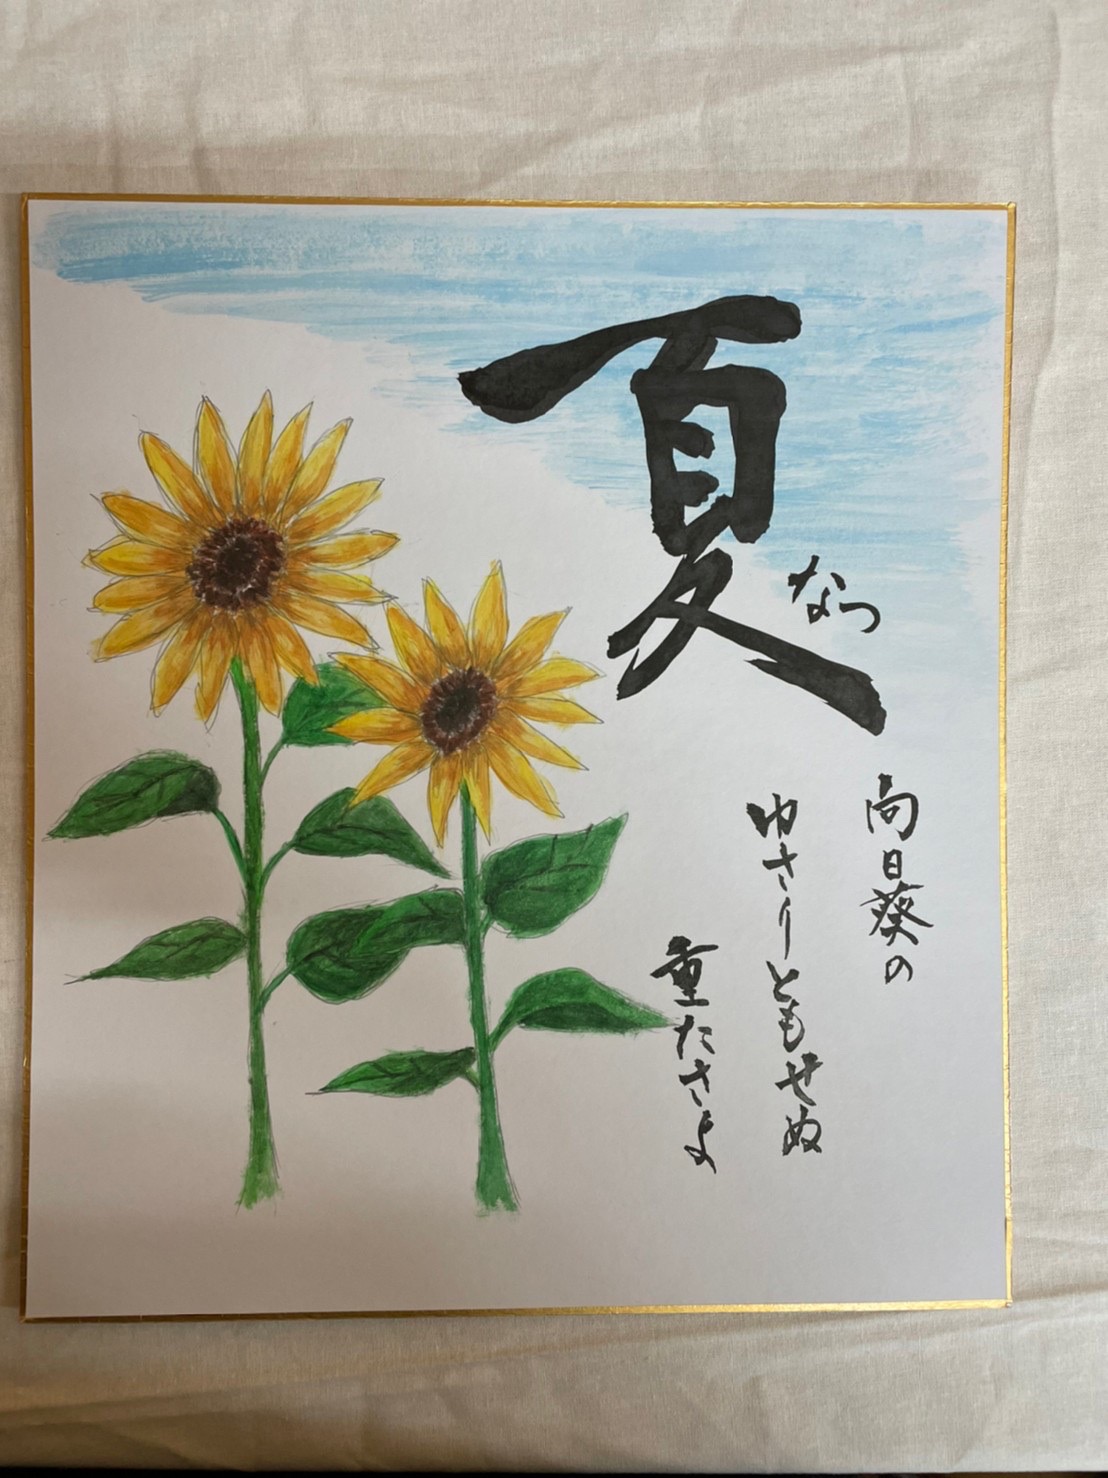 夏
なつ
向日葵の
ゆさりともせぬ
重たさよ